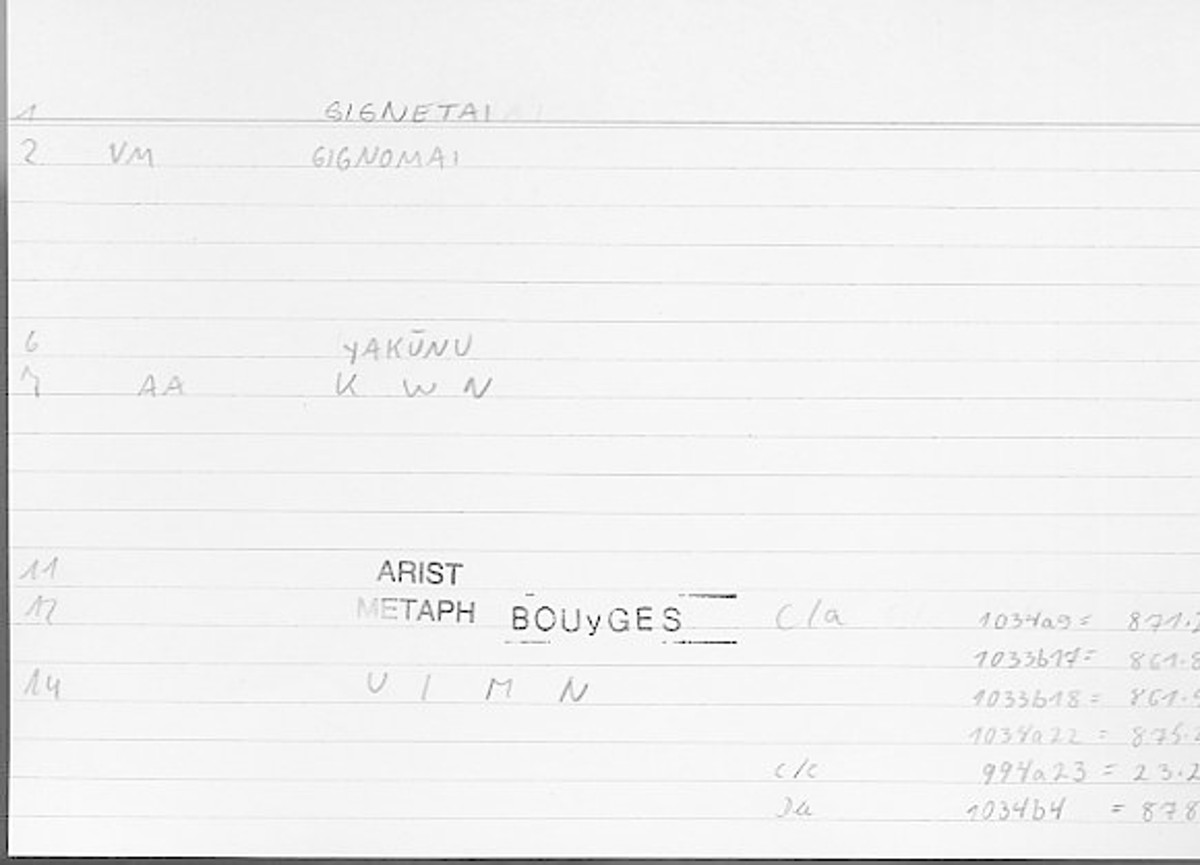 1 GIGNETAI
2 VM GIGNOMAI
6 YAKŪNU
7 AA K W N
11 ARIST
12 METAPH BOUyGES C/a 1034a9 = 871.2
1033b17 = 861.8
14 U I M N 1033b18 = 861.9
1034a22 = 875.2
c/c 994a23 = 23.2
Da 1034b4 = 878